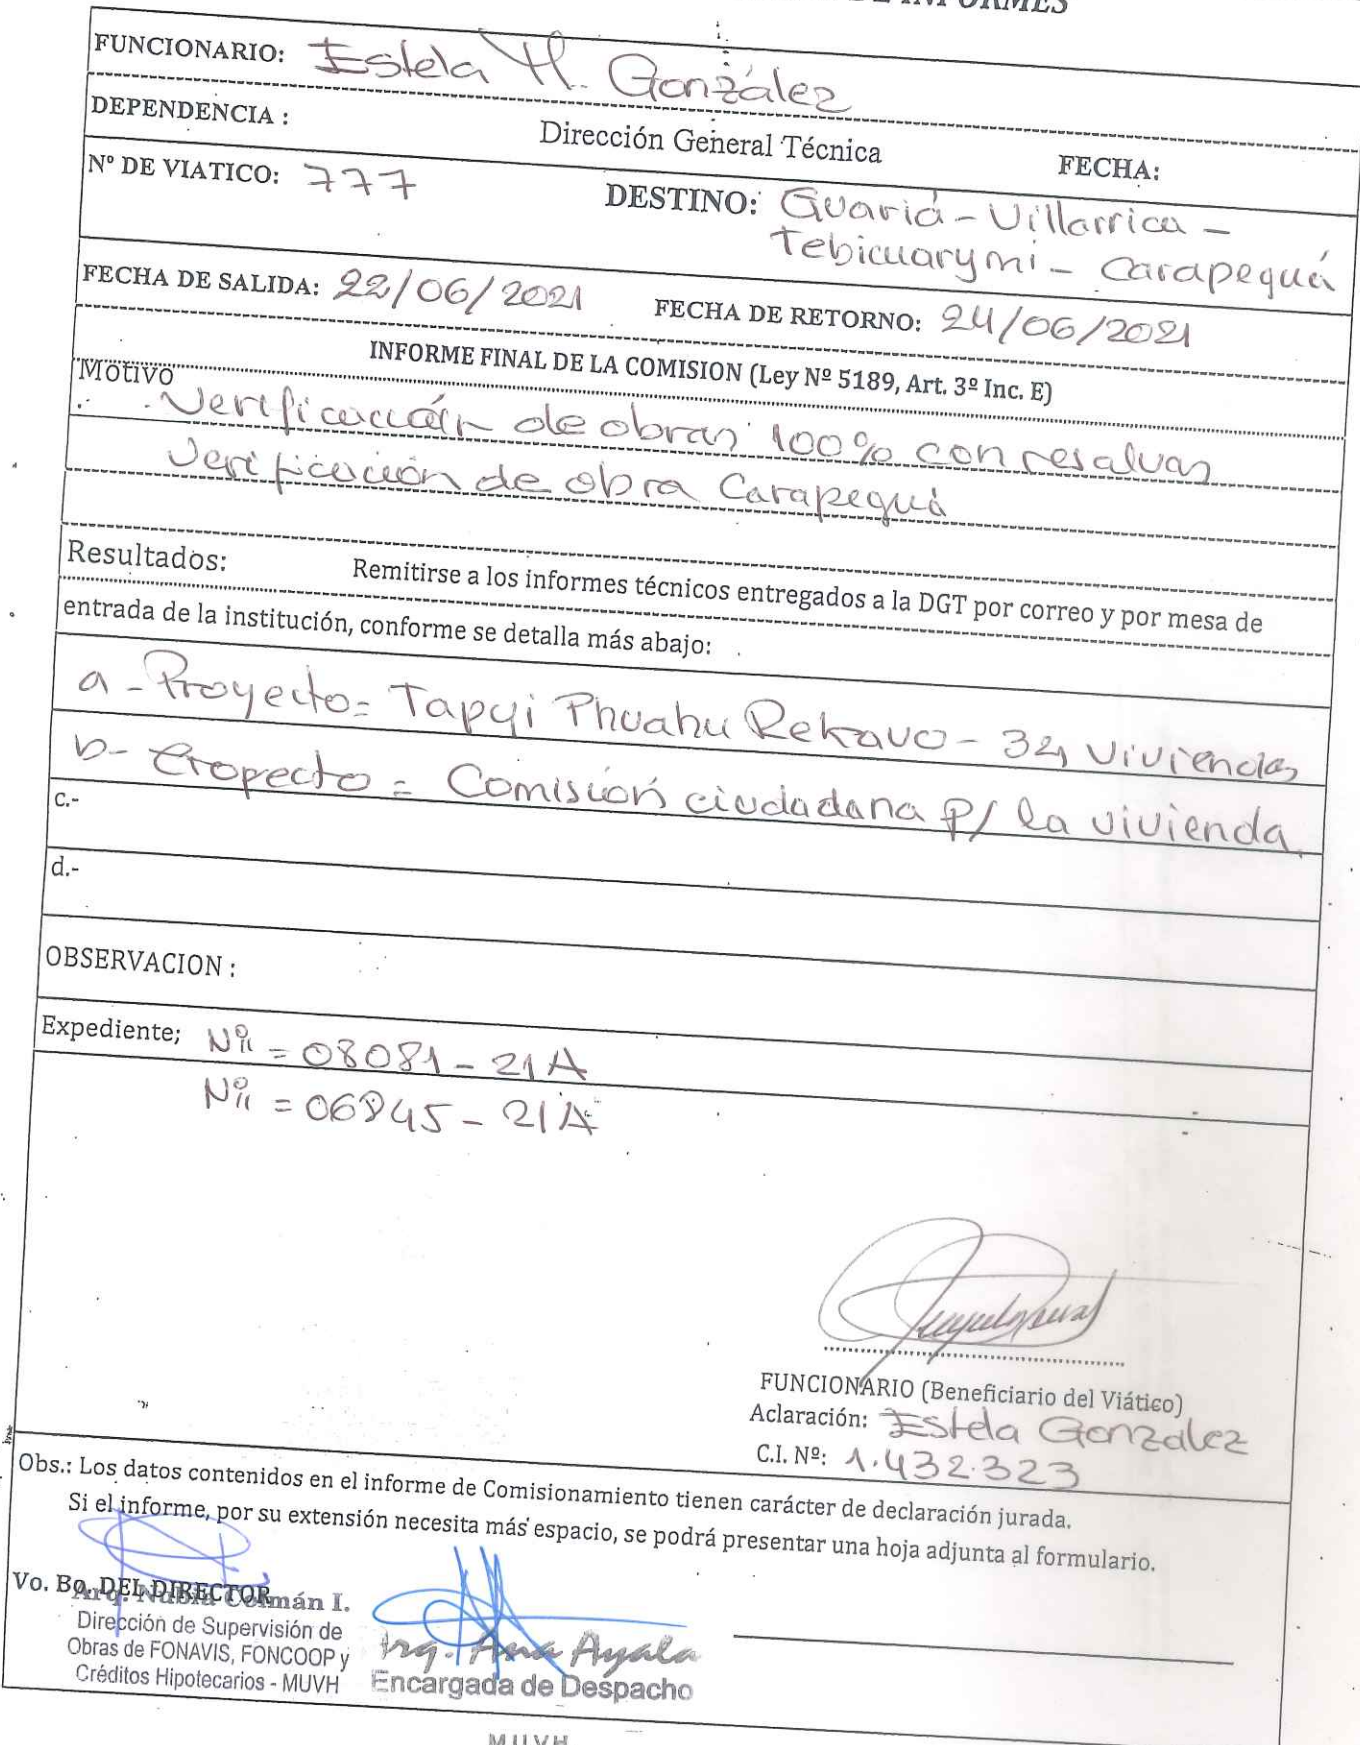 DE INFORMES
FUNCIONARIO: Estela H. González
DEPENDENCIA : Dirección General Técnica FECHA:
Nº DE VIATICO: 777 DESTINO: Guariá - Villarrica -
Tebicuarymi - Carapeguá
FECHA DE SALIDA: 22/06/2021 FECHA DE RETORNO: 24/06/2021
INFORME FINAL DE LA COMISION (Ley Nº 5189, Art. 3º Inc. E)
Motivo
Verificación de obras 100% con resalvas
Verificación de obra Carapeguá
Resultados: Remitirse a los informes técnicos entregados a la DGT por correo y por mesa de
entrada de la institución, conforme se detalla más abajo:
a - Proyecto = Tapyi Phuahu Rekavo - 32 viviendas
b - Proyecto = Comisión ciudadana p/ la vivienda.
c.-
d.-
OBSERVACION :
Expediente; Nº = 08081 - 21A
Nº = 06845 - 21A
FUNCIONARIO (Beneficiario del Viático)
Aclaración: Estela González
C.I. Nº: 1.432.323
Obs.: Los datos contenidos en el informe de Comisionamiento tienen carácter de declaración jurada.
Si el informe, por su extensión necesita más espacio, se podrá presentar una hoja adjunta al formulario.
Vo. Bo. DEL DIRECTOR
Arq. Nubia Colmán I.
Dirección de Supervisión de
Obras de FONAVIS, FONCOOP y
Créditos Hipotecarios - MUVH
Arq. Ana Ayala
Encargada de Despacho
MUVH